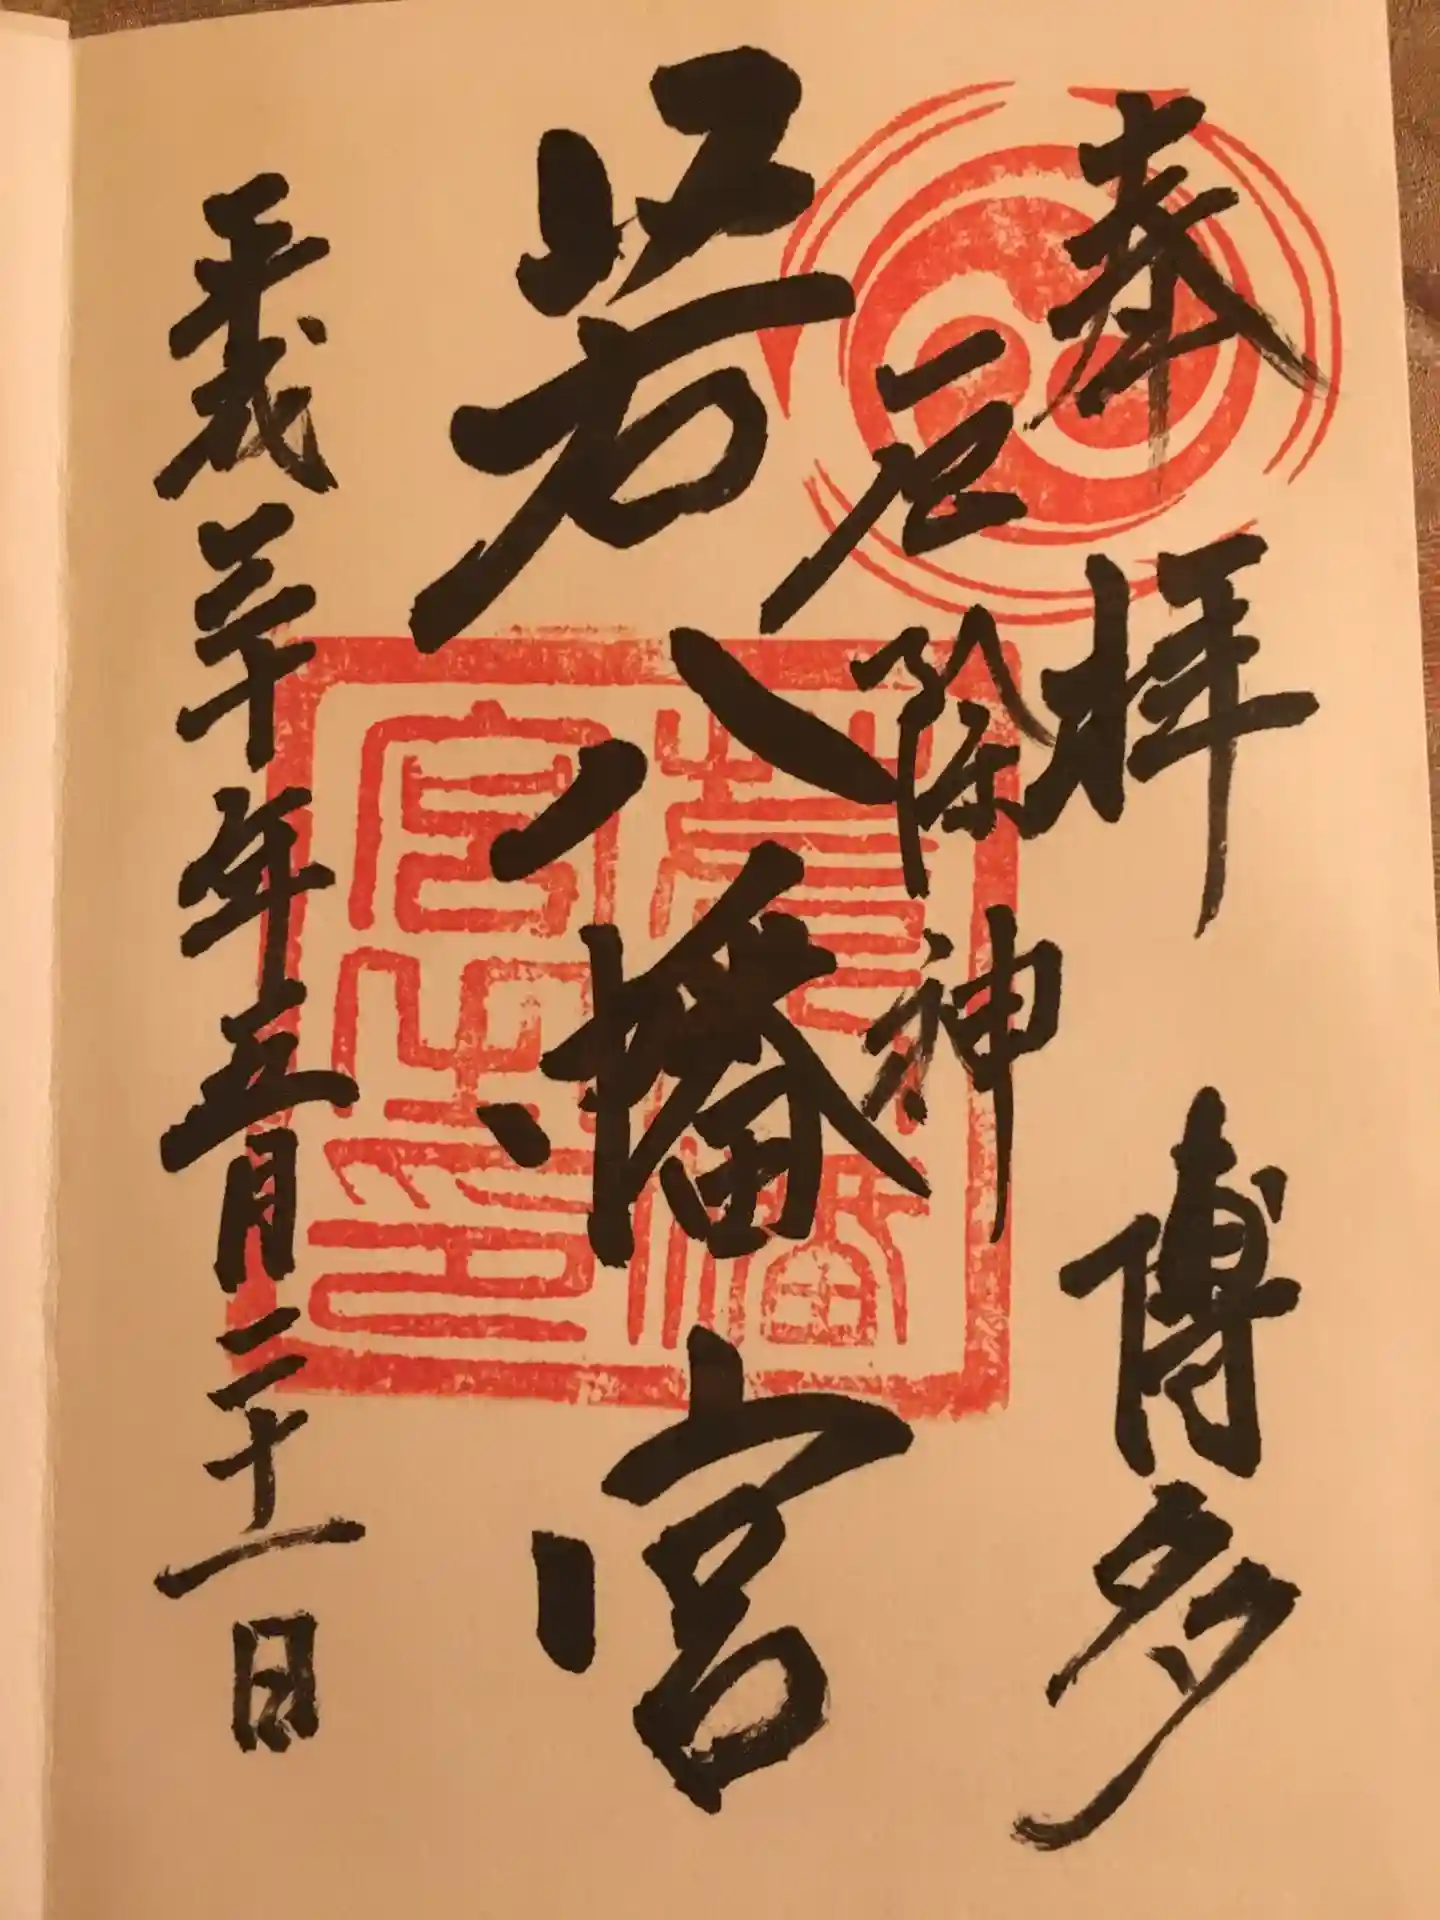 奉拝 博多
厄除神
若八幡宮
平成三十年五月二十一日
若八幡宮之印